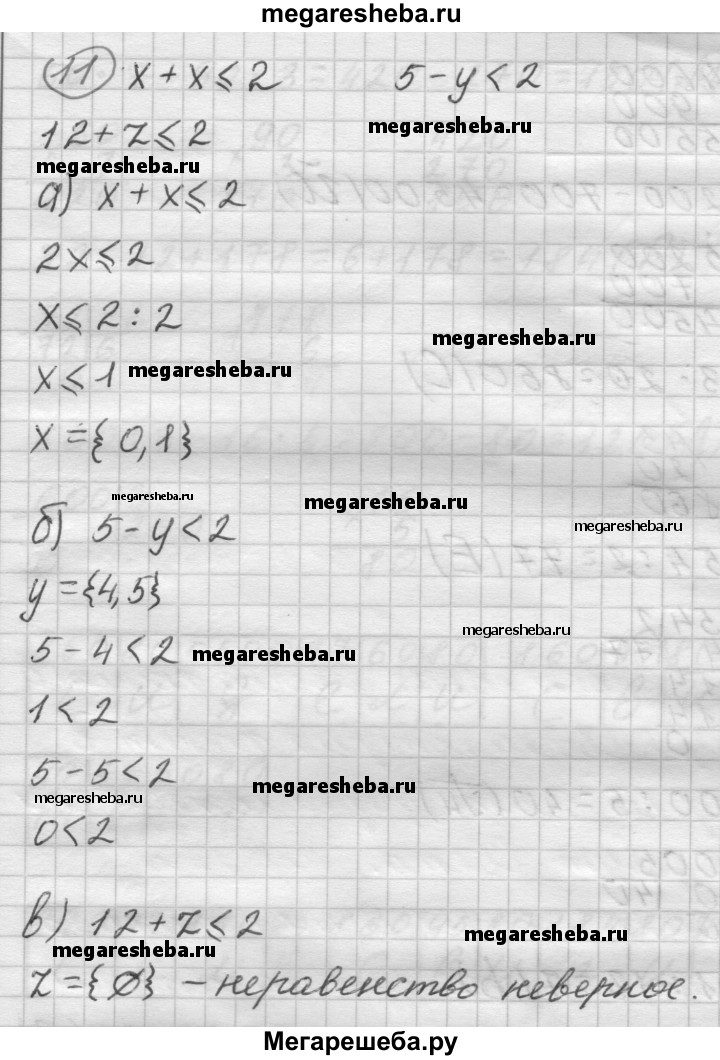 megaresheba.ru
11 x + x ⩽ 2 5 - y < 2
megaresheba.ru
12 + z ⩽ 2
megaresheba.ru
а) x + x ⩽ 2
2x ⩽ 2
x ⩽ 2 : 2
megaresheba.ru
x ⩽ 1 megaresheba.ru
x = {0, 1}
megaresheba.ru
megaresheba.ru
б) 5 - y < 2
megaresheba.ru
y = {4, 5}
megaresheba.ru
5 - 4 < 2 megaresheba.ru
1 < 2
5 - 5 < 2
megaresheba.ru
megaresheba.ru
0 < 2
в) 12 + z ⩽ 2
megaresheba.ru
megaresheba.ru
z = {∅} - неравенство неверное.
Мегарешеба.ру